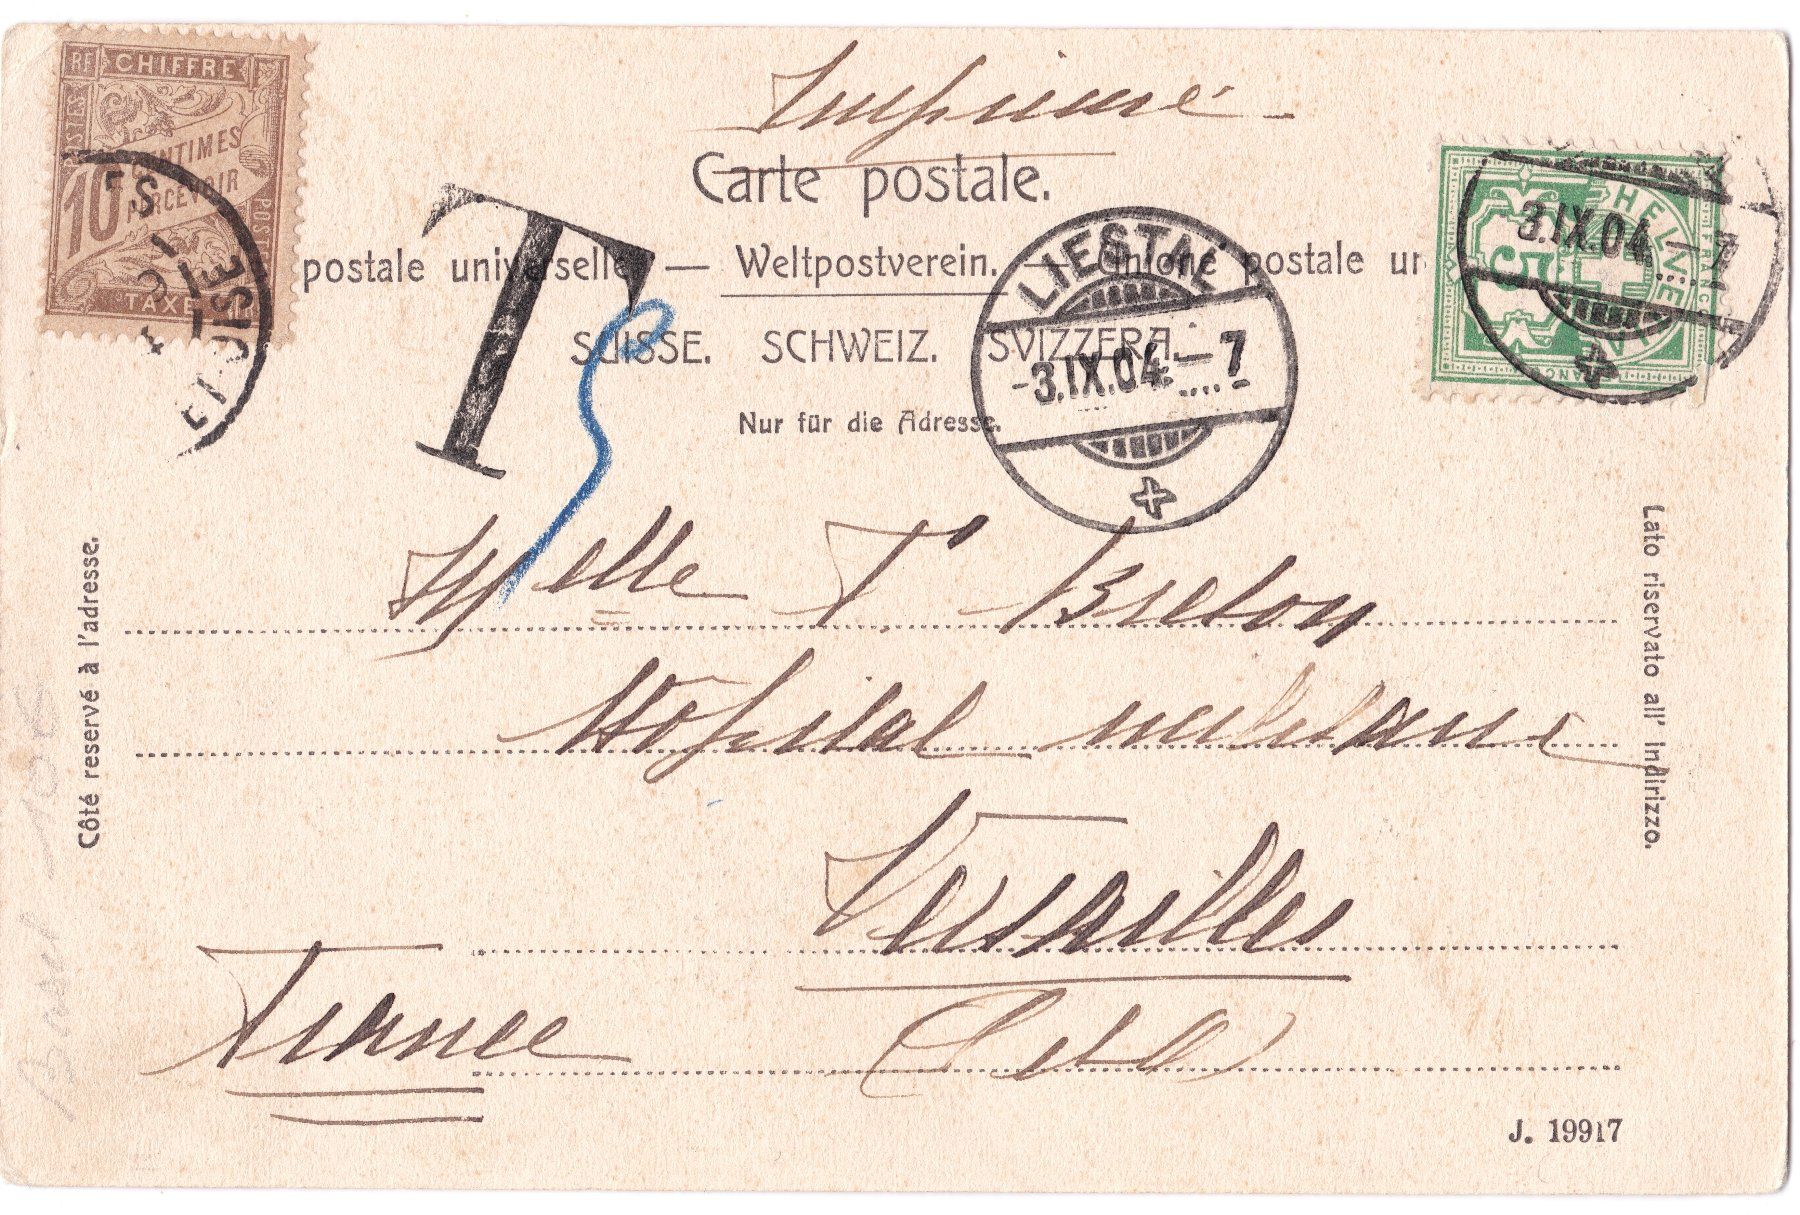 RF CHIFFRE
POSTES
10 CENTIMES
PERCEVOIR
TAXE
POS
ES
ET-OISE
Imprimé
Carte postale.
postale universelle. — Weltpostverein. — Unione postale un
SUISSE. SCHWEIZ. SVIZZERA.
Nur für die Adresse.
T
5
LIESTAL
-3.IX.04.—7
HELVETIA
FRANCO
5
3.IX.04.—7
Côté reservé à l'adresse.
Lato riservato all' indirizzo.
Melle T. Breton
Hopital militaire
Versailles
France
(S et O)
J. 19917